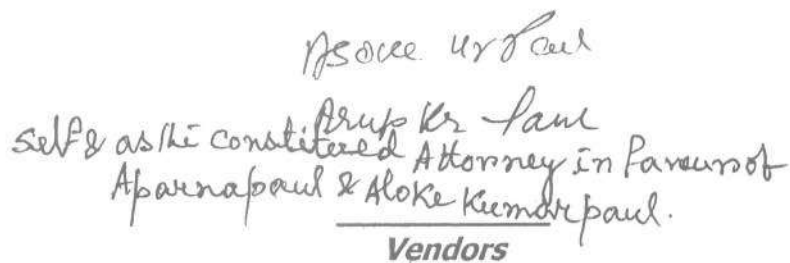 Asoke Kr Paul
Arup Kr Paul
Self & as the constitured Attorney in favour of
Aparna paul & Aloke Kumar paul.
Vendors